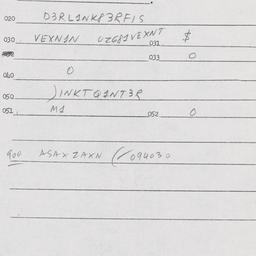 020 D3RL1NKP3RFIS
030 VEXN1N UZG81VEXNT $
031
033 0
040 0
050 )INKTQ1NT3R
051 M1 052 0
900 ASAXZAXN (/094030